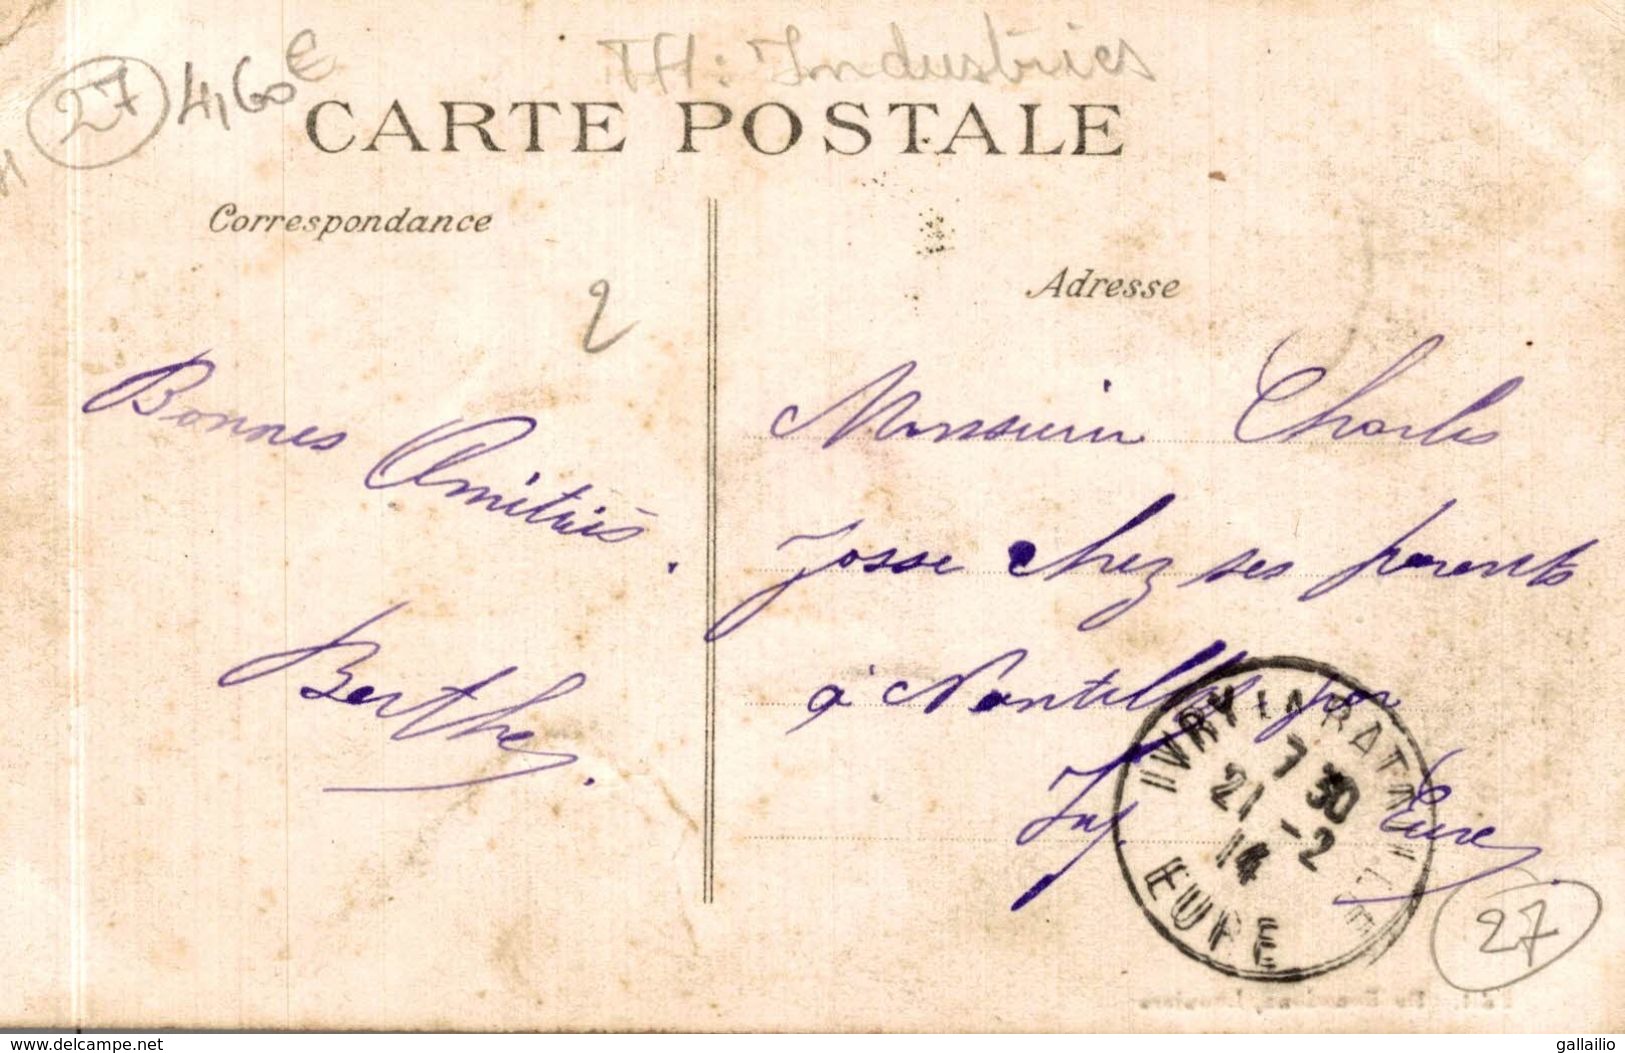 27 4,60€ TH: Industries
CARTE POSTALE
Correspondance
Adresse
2
Bonnes
Amitiés.
Berthe.
Monsieur Charles
Josse chez ses parents
à Nantilly par
Eure
IVRY LA BATAILLE
7 30
21 -2
14
EURE
27
www.delcampe.net
gallailio